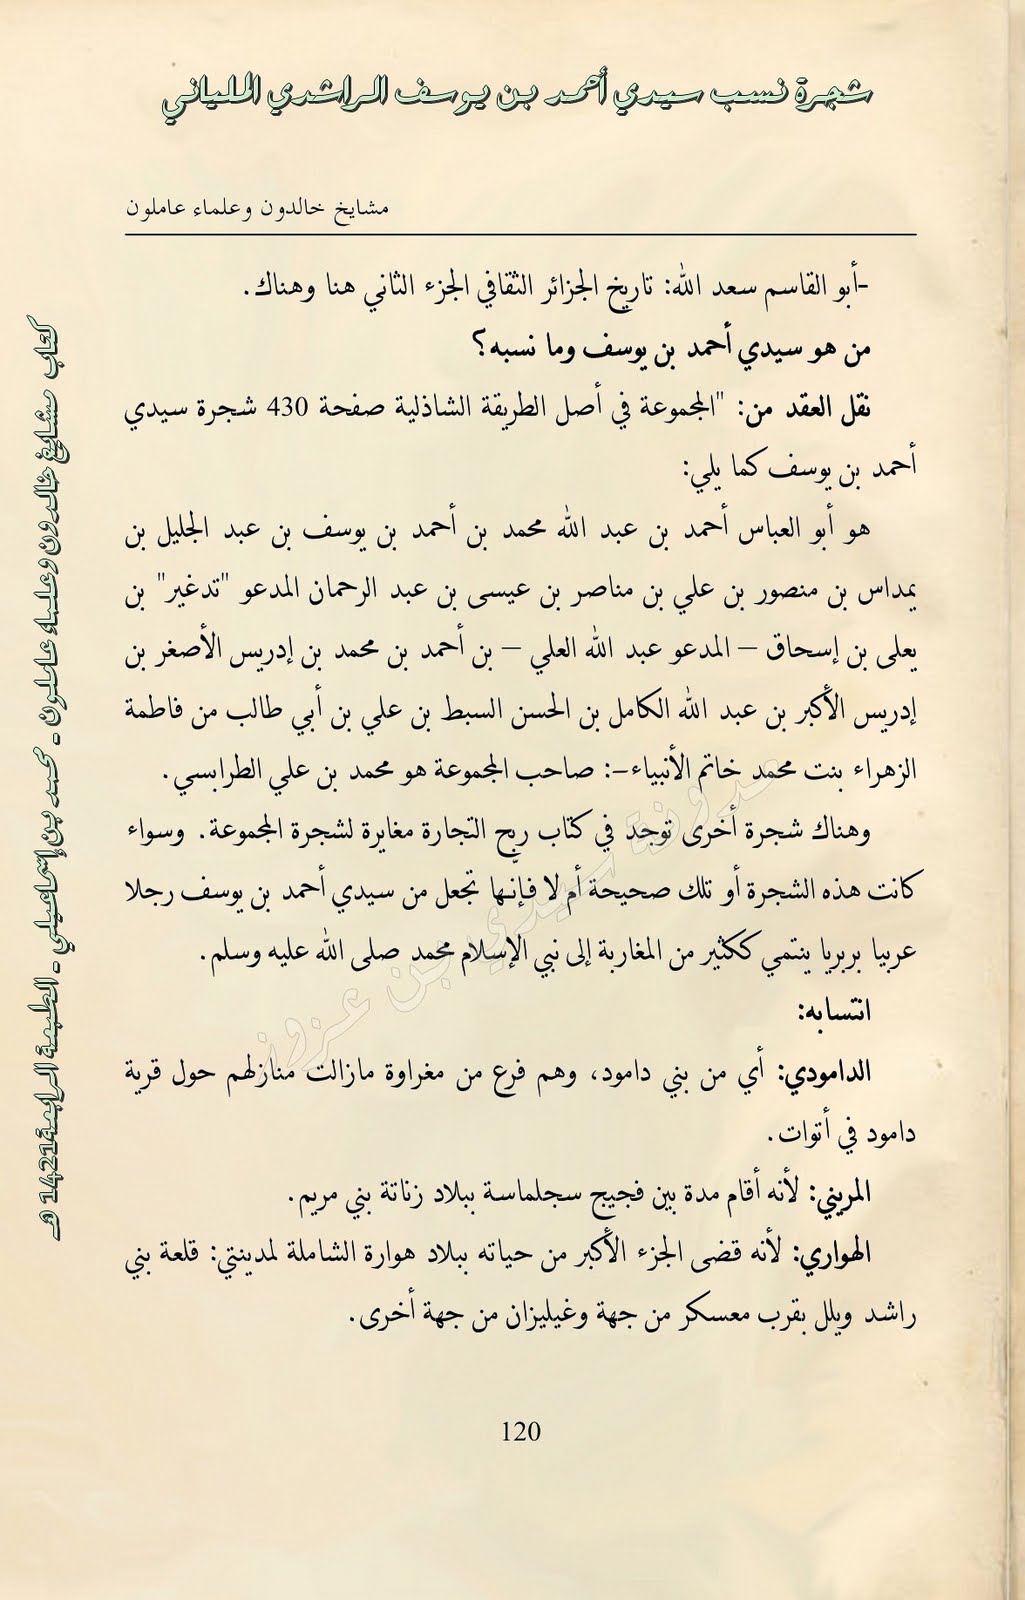 شجرة نسب سيدي أحمد بن يوسف الراشدي الملياني
مشايخ خالدون وعلماء عاملون
-أبو القاسم سعد الله: تاريخ الجزائر الثقافي الجزء الثاني هنا وهناك.
من هو سيدي أحمد بن يوسف وما نسبه؟
نقل العقد من: "المجموعة في أصل الطريقة الشاذلية صفحة 430 شجرة سيدي
أحمد بن يوسف كما يلي:
هو أبو العباس أحمد بن عبد الله محمد بن أحمد بن يوسف بن عبد الجليل بن
يمداس بن منصور بن علي بن مناصر بن عيسى بن عبد الرحمان المدعو "تدغير" بن
يعلى بن إسحاق – المدعو عبد الله العلي – بن أحمد بن محمد بن إدريس الأصغر بن
إدريس الأكبر بن عبد الله الكامل بن الحسن السبط بن علي بن أبي طالب من فاطمة
الزهراء بنت محمد خاتم الأنبياء–: صاحب المجموعة هو محمد بن علي الطرابسي.
وهناك شجرة أخرى توجد في كتاب ربح التجارة مغايرة لشجرة المجموعة. وسواء
كانت هذه الشجرة أو تلك صحيحة أم لا فإنّها تجعل من سيدي أحمد بن يوسف رجلا
عربيا بربريا ينتمي ككثير من المغاربة إلى نبي الإسلام محمد صلى الله عليه وسلم.
انتسابه:
الدامودي: أي من بني دامود، وهم فرع من مغراوة مازالت منازلهم حول قرية
دامود في أتوات.
المريني: لأنه أقام مدة بين فجيج سجلماسة ببلاد زناتة بني مريم.
الهواري: لأنه قضى الجزء الأكبر من حياته ببلاد هوارة الشاملة لمدينتي: قلعة بني
راشد ويلل بقرب معسكر من جهة وغيليزان من جهة أخرى.
120
كتاب مشايخ خالدون وعلماء عاملون - محمد بن إسماعيلي - الطبعة الرابعة 1421 هـ
مدونة سيدي بن عزوز